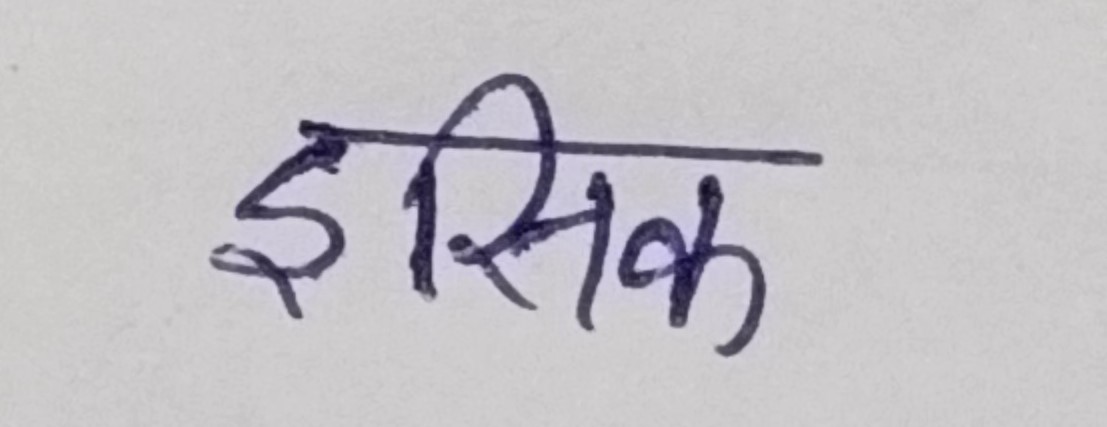 इसिक